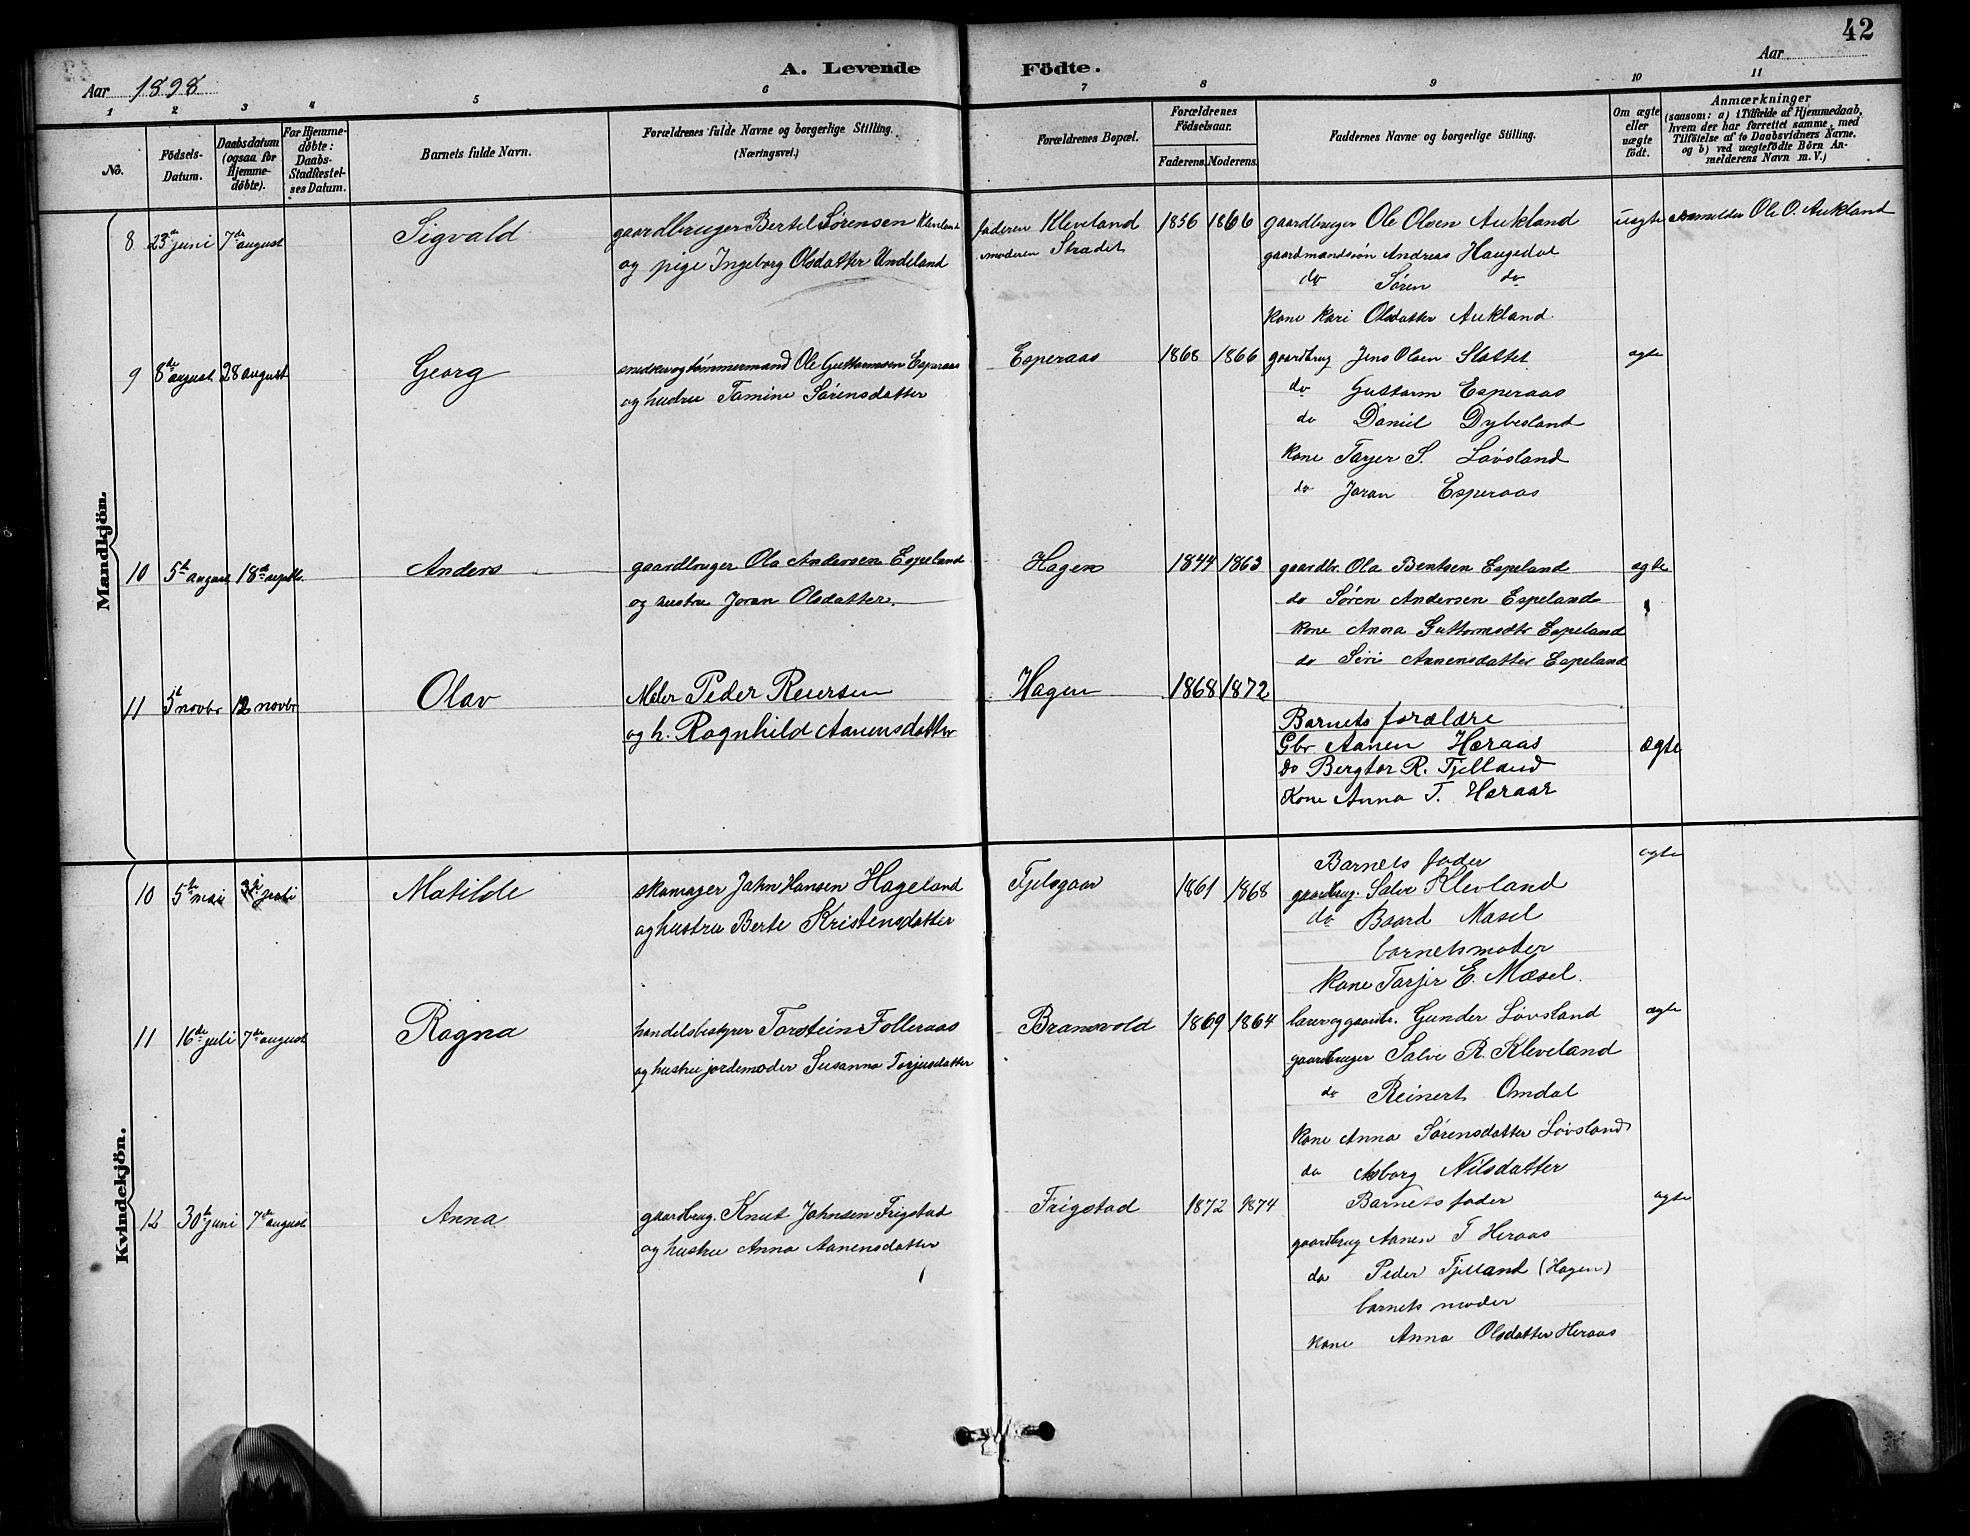 42
Aar 1898
A. Levende Födte.
Aar
1 2 3 4 5 6 7 8 9 10 11
No.
Födsels-Datum.
Daabsdatum (ogsaa for Hjemme-döbte).
For Hjemme-döbte: Daabs-Stadfestel-ses Datum.
Barnets fulde Navn.
Forældrenes fulde Navne og borgerlige Stilling. (Næringsvei.)
Forældrenes Bopæl.
Forældrenes Födselsaar.
Faderens. Moderens.
Faddernes Navne og borgerlige Stilling.
Om ægte eller uægte födt.
Anmærkninger
(saasom: a) i Tilfælde af Hjemmedaab, hvem der har forrettet samme, med Tilföielse af to Daabsvidners Navne, og b) ved uægtefödte Börn An-melderens Navn m. V.)
Mandkjön.
8 23de juni 7de august Sigvald gaardbruger Bertel Sørensen Kleveland faderen Kleveland 1856 1866 gaardbruger Ole Olsen Aukland uægte anmelder Ole O. Aukland
og pige Ingeborg Olsdatter Undeland moderen Stradet gaardmandssøn Andreas Haugedal
do Søren do
kone Kari Olsdatter Aukland
9 8de august 28 august Georg snedker og tømmermand Ole Guttormsen Esperaas Esperaas 1868 1866 gaardbrug Jens Olsen Slottet ægte
og hustru Tomine Sørensdatter do Guttorm Esperaas
do Daniel Dybesland
kone Tarjer S. Løvsland
do Joran Esperaas
10 5te august 18de septbr. Anders gaardbruger Ola Andersen Espeland Hagen 1844 1863 gaardbr. Ola Bentsen Espeland ægte
og hustru Joran Olsdatter. do Søren Andersen Espeland
kone Anna Guttormsdtr Espeland
do Siri Aanensdatter Espeland
11 5t novbr 12 novbr Olav Maler Peder Reiersen Hagen 1868 1872
og h. Ragnhild Aanensdatter Barnets forældre
Gbr Aanen Heraas ægte
do Bergtor R. Tjelland
Kone Anna T. Heraas
Kvindekjön.
10 5te mai Matilde skomager Jahn Hansen Hageland Tjelsgaar 1861 1868 Barnets fader ægte
og hustru Berte Kristensdatter gaardbrug. Salve Klevland
do Baard Mæsel
barnets moder
kone Tarjer E. Mæsel.
11 16de juli 7de august Ragna handelsbestyrer Torstein Folleraas Bransvold 1869 1864 lærer og gaardbr. Gunder Løvsland ægte
og hustru jordemoder Susanna Torjusdatter gaardbruger Salve R. Kleveland
do Reinert Omdal
kone Anna Sørensdatter Løvsland
do Asborg Nilsdatter
12 30te juni 7de august Anna gaardbrug. Knut Johnsen Frigstad Frigstad 1872 1874 Barnets fader ægte
og hustru Anna Aanensdatter gaardbrug Aanen T Heraas
do Peder Tjelland (Hagen)
barnets moder
kone Anna Olsdatter Heraas